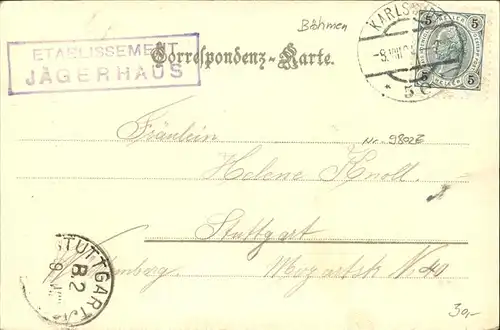 Böhmen
ETABLISSEMENT
JÄGERHAUS
Correspondenz-Karte.
KARLSB
5
5
HELLER
5
5
5 C
Nr. 9802E
Fräulein
Helene Knoll.
Stuttgart
Württemberg. Mozartstr. No 40
STUTTGART
B.2
39,-